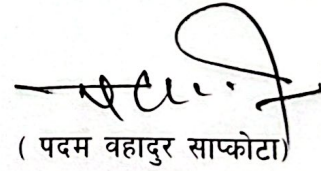 ( पदम वहादुर साप्कोटा)